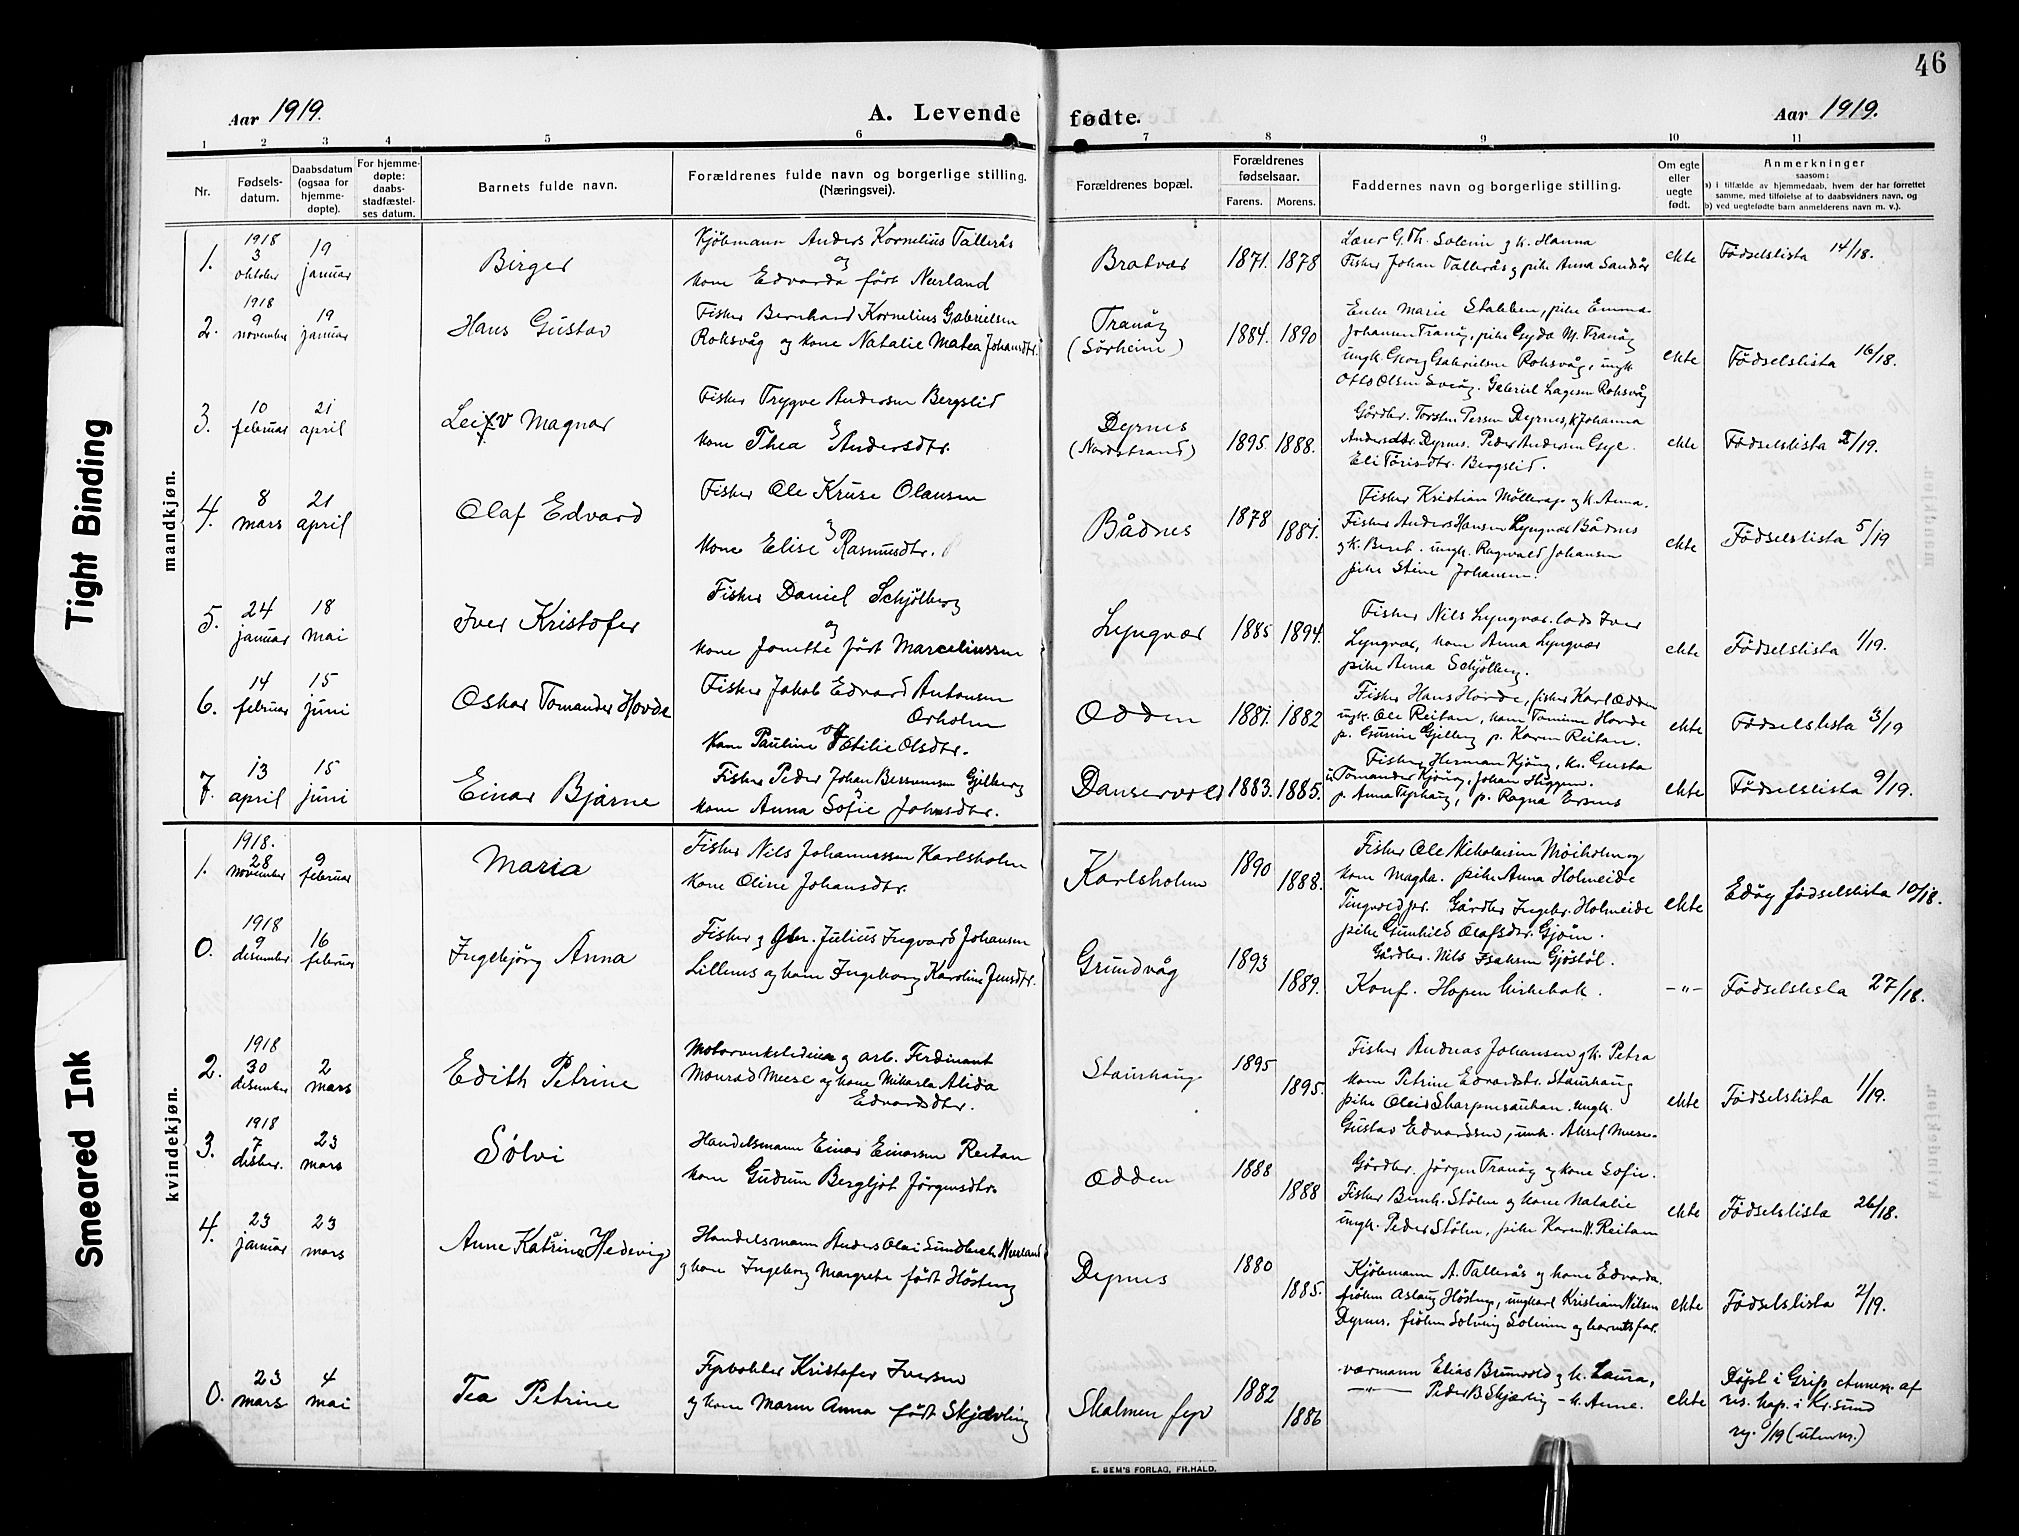 46
Aar 1919.
A. Levende fødte.
Aar 1919.
1 2 3 4 5 6 7 8 9 10 11
Nr.
Fødsels-
datum.
Daabsdatum
(ogsaa for
hjemme-
døpte).
For hjemme-
døpte:
daabs-
stadfæstel-
ses datum.
Barnets fulde navn.
Forældrenes fulde navn og borgerlige stilling.
(Næringsvei).
Forældrenes bopæl.
Forældrenes
fødselsaar.
Farens. Morens.
Faddernes navn og borgerlige stilling.
Om egte
eller
uegte
født.
Anmerkninger
saasom:
a) i tilfælde av hjemmedaab, hvem der har forrettet
samme, med tilføielse af to daabsvidners navn, og
b) ved uegtefødte barn anmelderens navn m. v.).
mandkjøn.
1.
1918
3
oktober
19
januar
Birger
Kjøbmann Anders Kornelius Tallerås
og
kone Edvarda født Neerland
Bratvær
1871. 1878
Lærer G. Th. Soleim og k. Hanna
Fisker Johan Tallerås og pike Anna Sandsør
ekte
Fødselslista 14/18.
2.
1918
9
november
19
januar
Hans Gustav
Fisker Bernhard Kornelius Gabrielsen
Roksvåg og kone Natalie Matea Johansdtr.
Tranøy
(Sørheim)
1884. 1890
Enke Marie Stabben, pike Emma
Johansen Tranøy, pike Gyda M. Tranøy
ungk. Georg Gabrielsen Roksvåg, ungk.
Otto Olsen Gabriel Lagesen Roksvåg
ekte
Fødselslista 16/18.
3.
10
februar
21
april
Leiv Magnar
Fisker Trygve Andersen Bergslid
og
kone Thea Andersdtr.
Dyrnes
(Nordstrand)
1895. 1888.
Gårdbr. Torsten Persen Dyrnes, k Johanna
Andersdtr. Dyrnes. Peder Andersen
Eli Bergslid.
ekte
Fødselslista 2/19.
4.
8
mars
21
april
Olaf Edvard
Fisker Ole Kruse Olausen
og
kone Elise Rasmusdtr.
Bådnes
1878 1881.
Fisker Kristian og k. Anna.
Fisker Anders Hansen Lyngvær Bådnes
og k. Berit. ungk. Ragnvald Johansen
pike Stine Johansen.
ekte
Fødselslista 5/19
5.
24
januar
18
mai
Iver Kristofer
Fisker Daniel Schjølberg
og
kone Janette født Marceliussen
Lyngvær
1885 1894.
Fisker Nils Lyngvær. Iver
Lyngvær, kone Anna Lyngvær
pike Anna Schjølberg.
ekte
Fødselslista 1/19.
6.
14
februar
15
juni
Oskar Tomander Hovde
Fisker Jakob Edvard Antonsen
Orholm
og
kone Pauline Otilie Olsdtr.
Odden
1881. 1882
Fisker Hans Hovde, fisker Karl Odden
ungk. Ole Reitan, kone Tomine Hovde
p. Gurine Gjelberg p. Karen Reitan.
ekte
Fødselslista 3/19
7.
13
april
15
juni
Einar Bjarne
Fisker Peder Johan Gjelberg
og
kone Anna Sofie Johnsdtr.
Danservold
1883. 1885.
Fisker Herman Kjønøy, k. Gusta
Tomander Kjønøy, Johan
p. Anna p. Ragna
ekte
Fødselslista 9/19.
kvindekjøn.
1.
1918.
28
november
9
februar
Maria
Fisker Nils Johannessen Karlsholm
kone Oline Johansdtr.
Karlsholm
1890 1888.
Fisker Ole Nikolaisen Møiholm og
kone Magda. pike Anna Holmeide
Gårdbr Ingebr. Holmeide
pike Gunhild Olafsdtr. Gjøin.
Gårdbr. Nils Isaksen Gjøstøl.
ekte
Edøy fødselslista 10/18.
0.
1918
9
desember
16
februar
Ingebjørg Anna
Fisker og Gbr. Julius Ingvard Johansen
Lillenes og kone Ingeborg Karoline Jensdtr.
Grundvåg
1893 1889.
Konf. Hopen kirkebok.
—"—
Fødselslista 27/18.
2.
1918
30
desember
2
mars
Edith Petrine
og arb. Ferdinant
Monrad Meese og kone Mikarla Alida
Edvardsdtr.
Staurhaug
1895 1895.
Fisker Andreas Johansen og k. Petra
kone Petrine Edvardsdtr. Staurhaug
pike ungk.
Gustav Edvardsen, ungk. Aksel Meese.
ekte
Fødselslista 1/19.
3.
1918
7
desbr.
23
mars
Sølvi
Handelsmann Einar Einarsen Reitan
kone Gudrun Bergljot Jørgensdtr.
Odden
1888 1888
Gårdbr. Jørgen Tranøy og kone Sofie.
Fisker Bernh. Stølen og kone Natalie
ungk. Peder Stølen, pike Karen M. Reitan
ekte
Fødselslista 26/18.
4.
23
januar
23
mars
Anne Katrine Hedevig
Handelsmann Anders Olai Sundbech Neerland
og kone Ingeborg Margrete født Høstmg
Dyrnes
1880 1885.
Kjøbmann A. Tallerås og kone Edvarda.
frøken Aslaug ungkarl Kristian Nilsen
Dyrnes, frøken Solveig Soleim og barnets far.
ekte
Fødselslista 2/19.
0.
23
mars
4
mai
Tea Petrine
Fyrvokter Kristofer Iversen
og kone Maren Anna født Skjevling
Skalmen fyr
1882 1886
værmann Elias Brunvold og k. Laura,
—"— Peder B Skjevling — k. Anne.
ekte
Døpt i Grip Annex af
res. kap. i Kr.sund
E. SEM'S FORLAG, FR.HALD.
Tight Binding
Smeared Ink